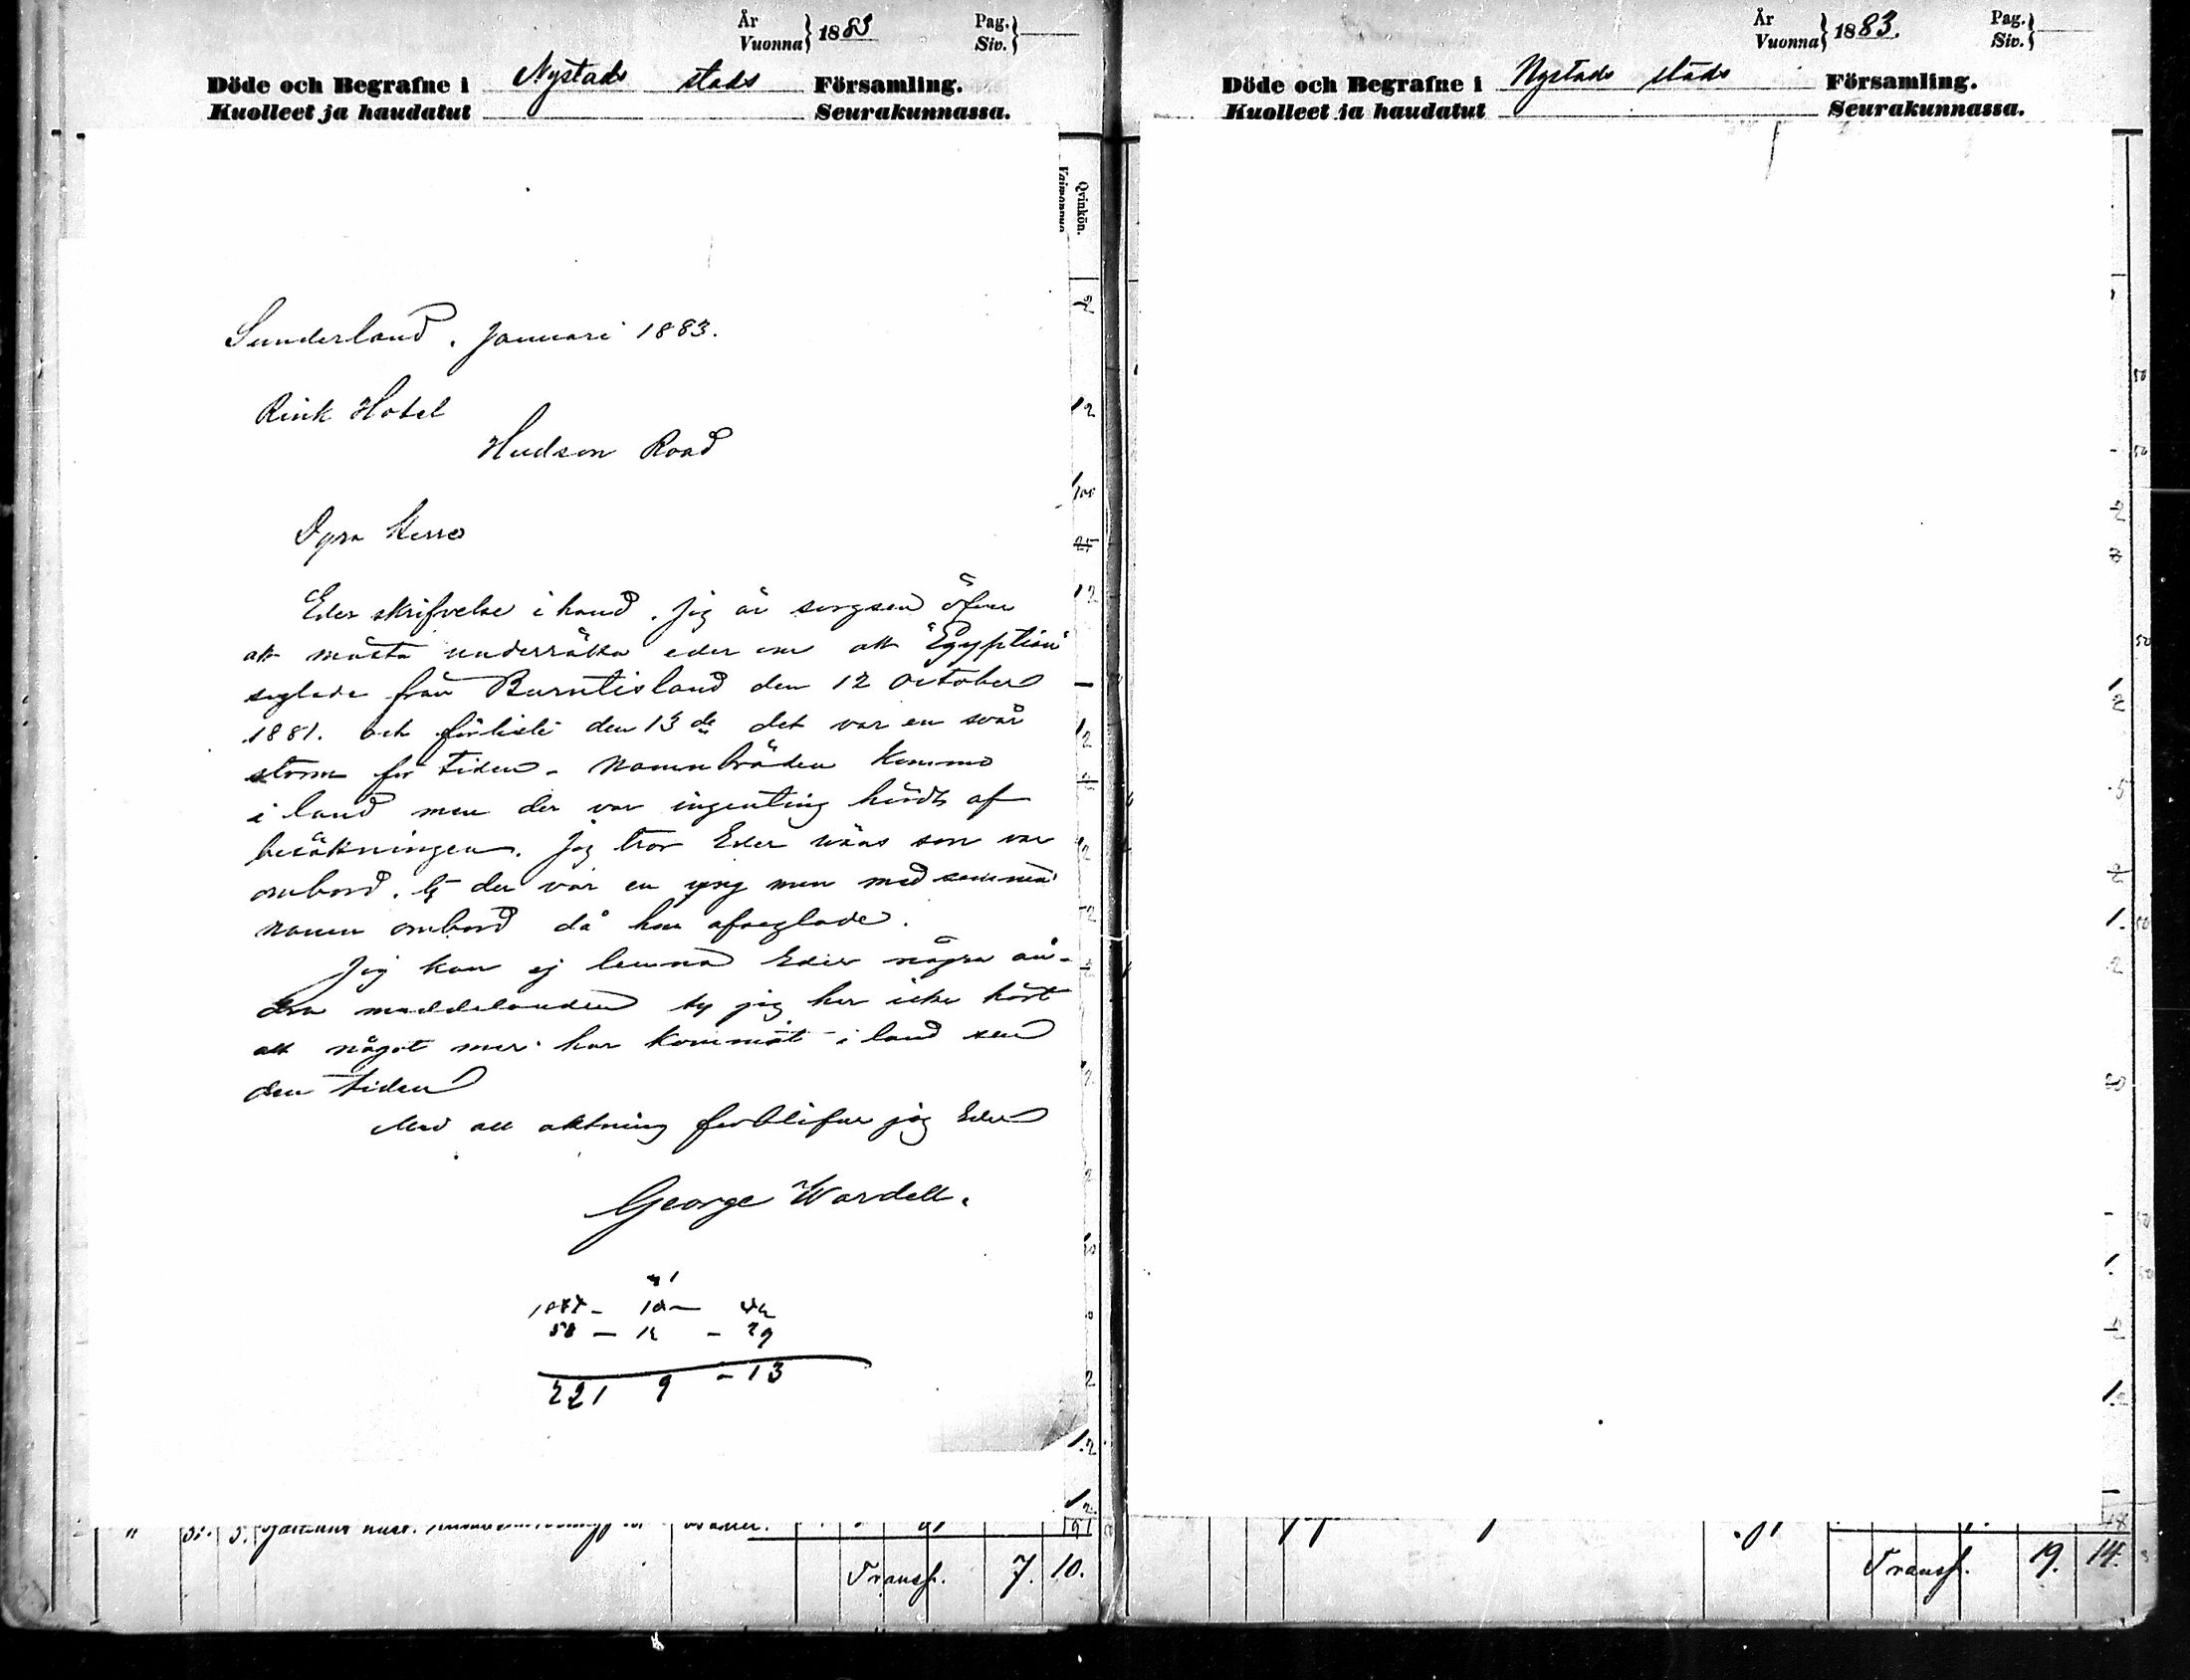 År
Vuonna } 1883
Pag.
Siv. }
Döde och Begrafne i Nystads stads Församling.
Kuolleet ja haudatut Seurakunnassa.
Qvinkön.
Sunderland. Januari 1883.
Rink Hotel
Hudson Road
Dyra Herre
Eder skrifvelse i hand. Jeg är sorgsen öfver
att måsta underrätta eder om att "Egyptian"
seglade från Burntisland den 12 October
1881. och förliste den 13 de det var en svår
storm för tiden. Namnbräden kommo
i land men der var ingenting hördt af
besättningen. Jag tror Eder son var
ombord. ty der var en yng man med samma
namn ombord då hon afseglade.
Jag kan ej lemna Eder några an-
dra meddelanden ty jag har icke hört
att något mer har kommit i land sen
den tiden
Med all aktning forblifver jag Eder
George Wardell.
58 - 12 - 29
221 9 - 13
Transp. 7. 10.
År
Vuonna } 1883.
Pag.
Siv. }
Döde och Begrafne i Nystads stads Församling.
Kuolleet ja haudatut Seurakunnassa.
Transp. 19. 14.